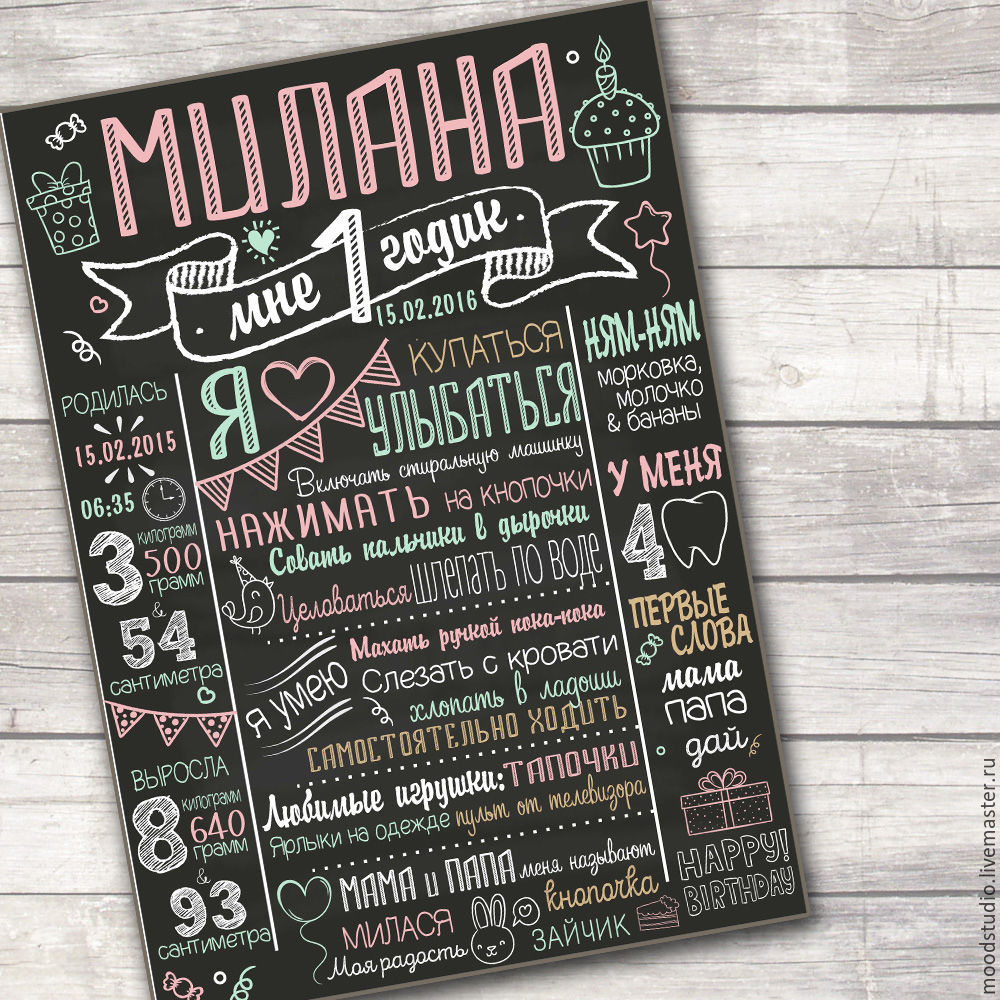 МИЛАНА
мне 1 годик
15.02.2016
РОДИЛАСЬ
15.02.2015
06:35
3 килограмм
500
грамм
&
54
сантиметра
ВЫРОСЛА
8 килограмм
640
грамм
&
93
сантиметра
Я
КУПАТЬСЯ
УЛЫБАТЬСЯ
Включать стиральную машинку
НАЖИМАТЬ на кнопочки
Совать пальчики в дырочки
Целоваться шлепать по воде
Я умею
Махать ручкой пока-пока
Слезать с кровати
хлопать в ладоши
САМОСТОЯТЕЛЬНО ХОДИТЬ
Любимые игрушки: ТАПОЧКИ
Ярлыки на одежде пульт от телевизора
МАМА и ПАПА меня называют
МИЛАСЯ
кнопочка
Моя радость
ЗАЙЧИК
НЯМ-НЯМ
морковка,
молочко
& бананы
У МЕНЯ
4
ПЕРВЫЕ
СЛОВА
мама
папа
дай
HAPPY!
BIRTHDAY
moodstudio.livemaster.ru